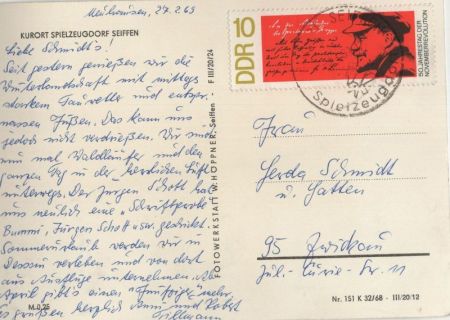 Neuhausen, 27.2.69
KURORT SPIELZEUGDORF SEIFFEN
Liebe Schmidt's!
Seit gestern genießen wir die
Winterlandschaft mit mittags
starkem Tauwetter und entspr.
nassen Füßen. Das kann uns
jedoch nicht verdrießen. Wir sind
nun mal Waldläufer und den
ganzen Tag in der herrlichen Luft
unterwegs. Der Jürgen Schott hat
uns neulich eine "Schriftprobe
Bummi, Jürgen Schott" gedruckt.
Sommerurlaub werden wir in
Dessau verleben und von dort
aus Ausflüge unternehmen. Im
April gibt's einen mehr
Es grüßen herzlich und
Tillmann
M 0,25
FOTOWERKSTATT W. HÖPPNER, Seiffen · F III/20/24
DDR 10
50. JAHRESTAG DER
NOVEMBERREVOLUTION
SEIFFEN
Spielzeugdorf
Frau
Gerda Schmidt
u. Gatten
95 Zwickau
Jul.-Curie-Str. 11
Nr. 151 K 32/68 - III/20/12